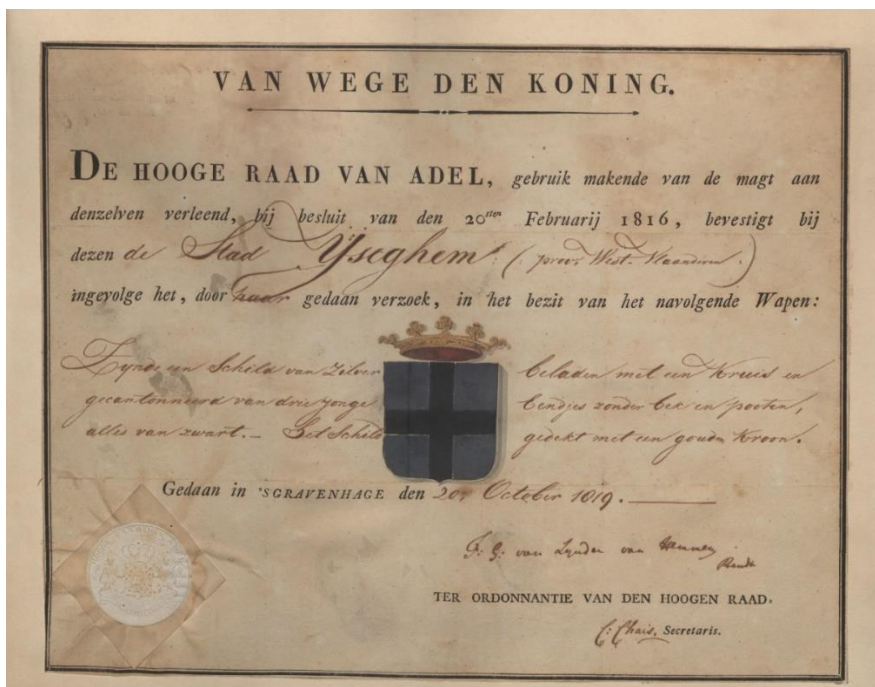 VAN WEGE DEN KONING.
DE HOOGE RAAD VAN ADEL, gebruik makende van de magt aan
denzelven verleend, bij besluit van den 20sten Februarij 1816, bevestigt bij
dezen de Stad Ijseghem: (prov: West-Vlaandren.)
ingevolge het, door haar gedaan verzoek, in het bezit van het navolgende Wapen:
Zynde een Schild van Zilver beladen met een Kruis en
gecantonneerd van drie jonge Eendjes zonder bek en pooten,
alles van zwart. — Het Schild gedekt met een gouden Kroon.
Gedaan in 'SGRAVENHAGE den 20 October 1819.
F: G: van Lynden van
TER ORDONNANTIE VAN DEN HOOGEN RAAD.
C: Chais, Secretaris.